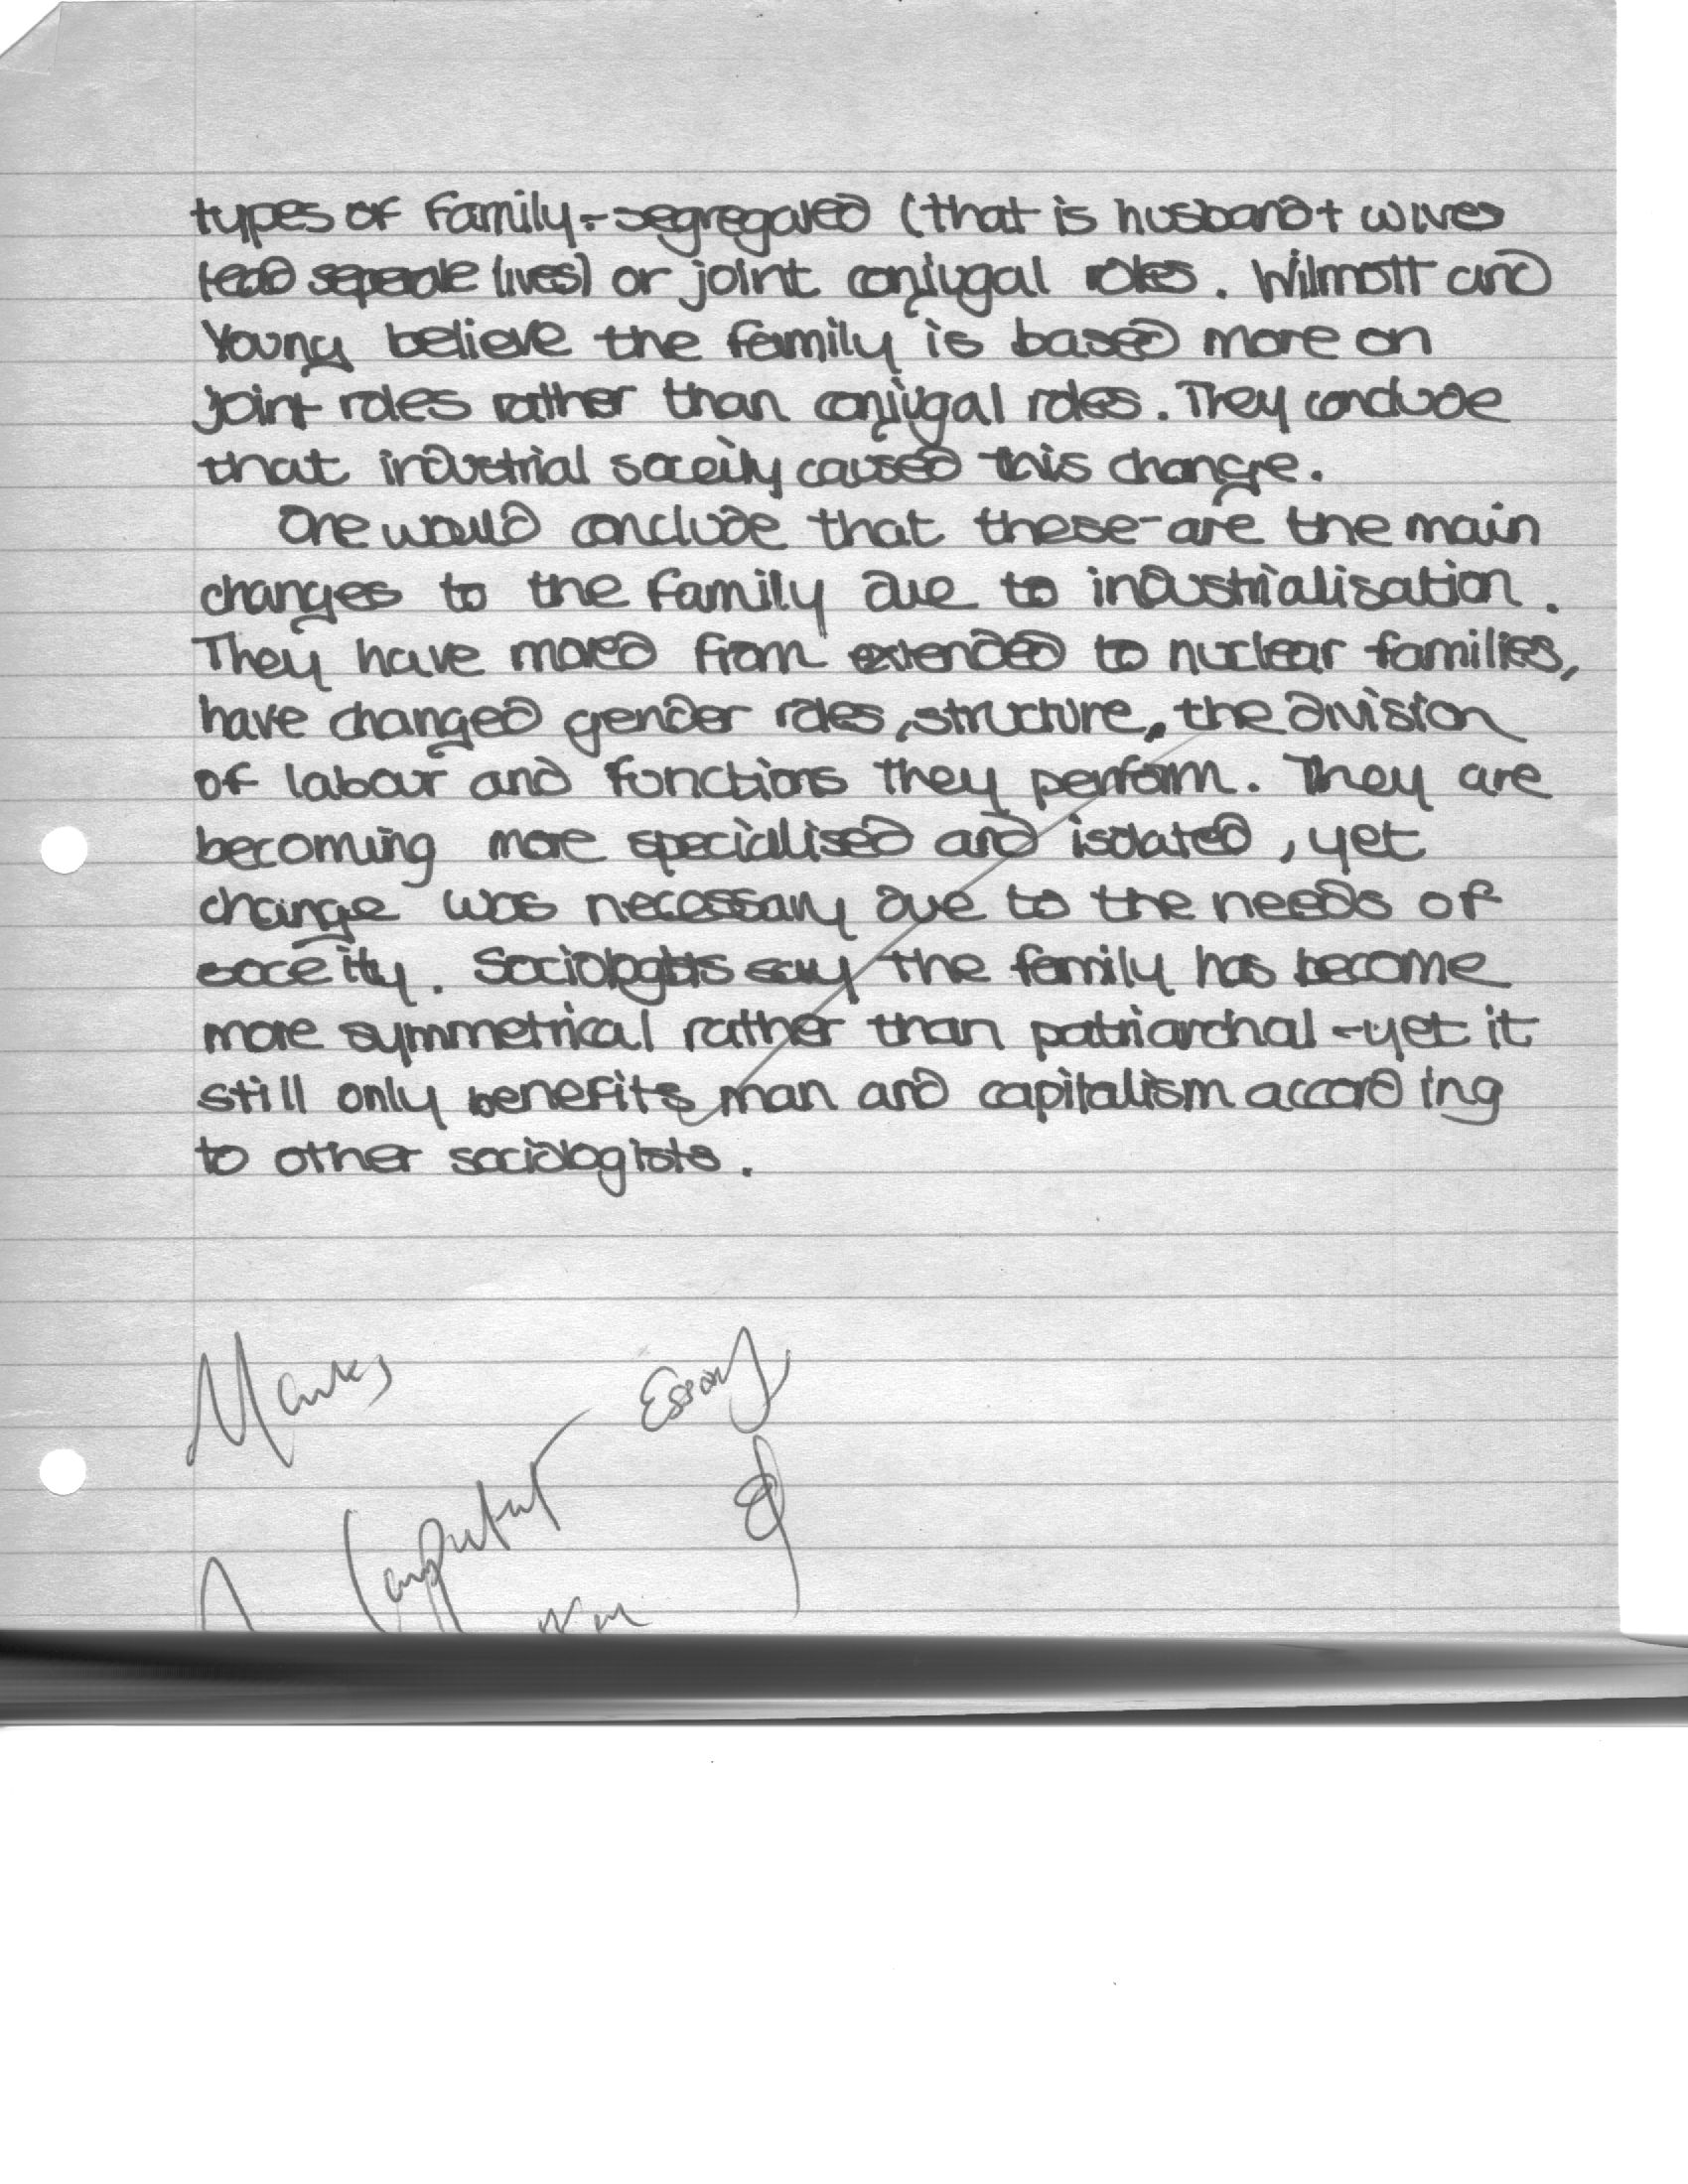 types of family - segregated (that is husband + wives
lead seperate lives) or joint conjugal roles. Wilmott and
Young believe the family is based more on
joint roles rather than conjugal roles. They conclude
that industrial soceity caused this change.
One would conclude that these are the main
changes to the family due to industrialisation.
They have moved from extended to nuclear families,
have changed gender roles, structure, the division
of labour and functions they perform. They are
becoming more specialised and isolated, yet
change was necessary due to the needs of
soceity. Sociologists say the family has become
more symmetrical rather than patriarchal - yet it
still only benefits man and capitalism according
to other sociologists.
Marks
Essay